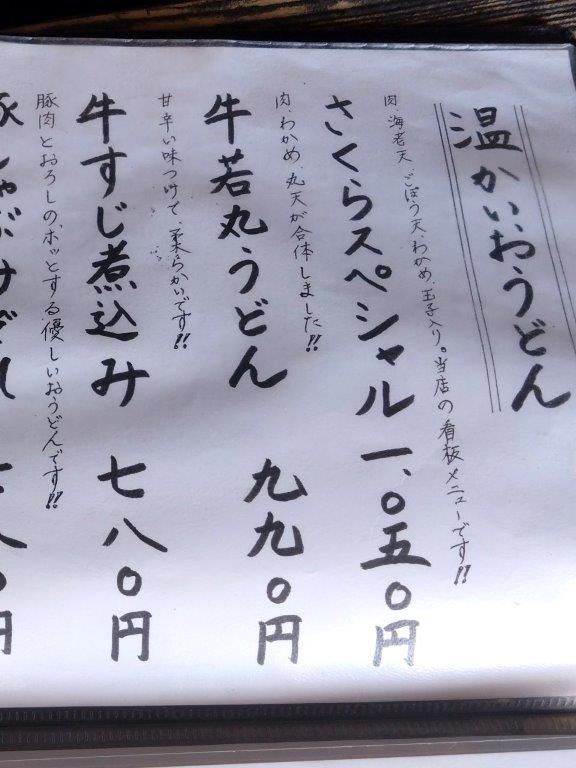 温かいおうどん
肉、海老天、ごぼう天、わかめ、玉子入り。当店の看板メニューです!!
さくらスペシャル 一、〇五〇円
肉、わかめ、丸天が合体しました!!
牛若丸うどん 九九〇円
甘辛い味つけで、柔らかいです!!
牛すじ煮込み 七八〇円
豚肉とおろしのホッとする優しいおうどんです!!